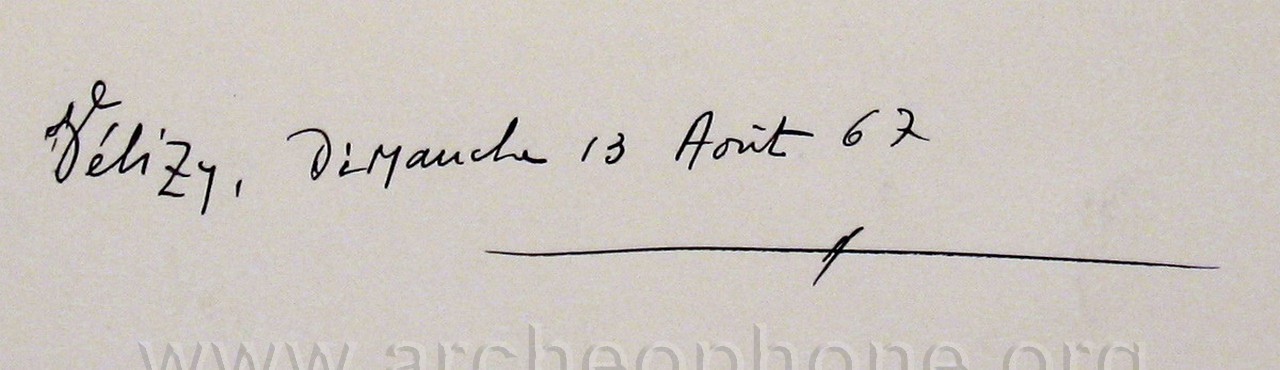 Vélizy, Dimanche 13 Août 67
www.archeophone.org